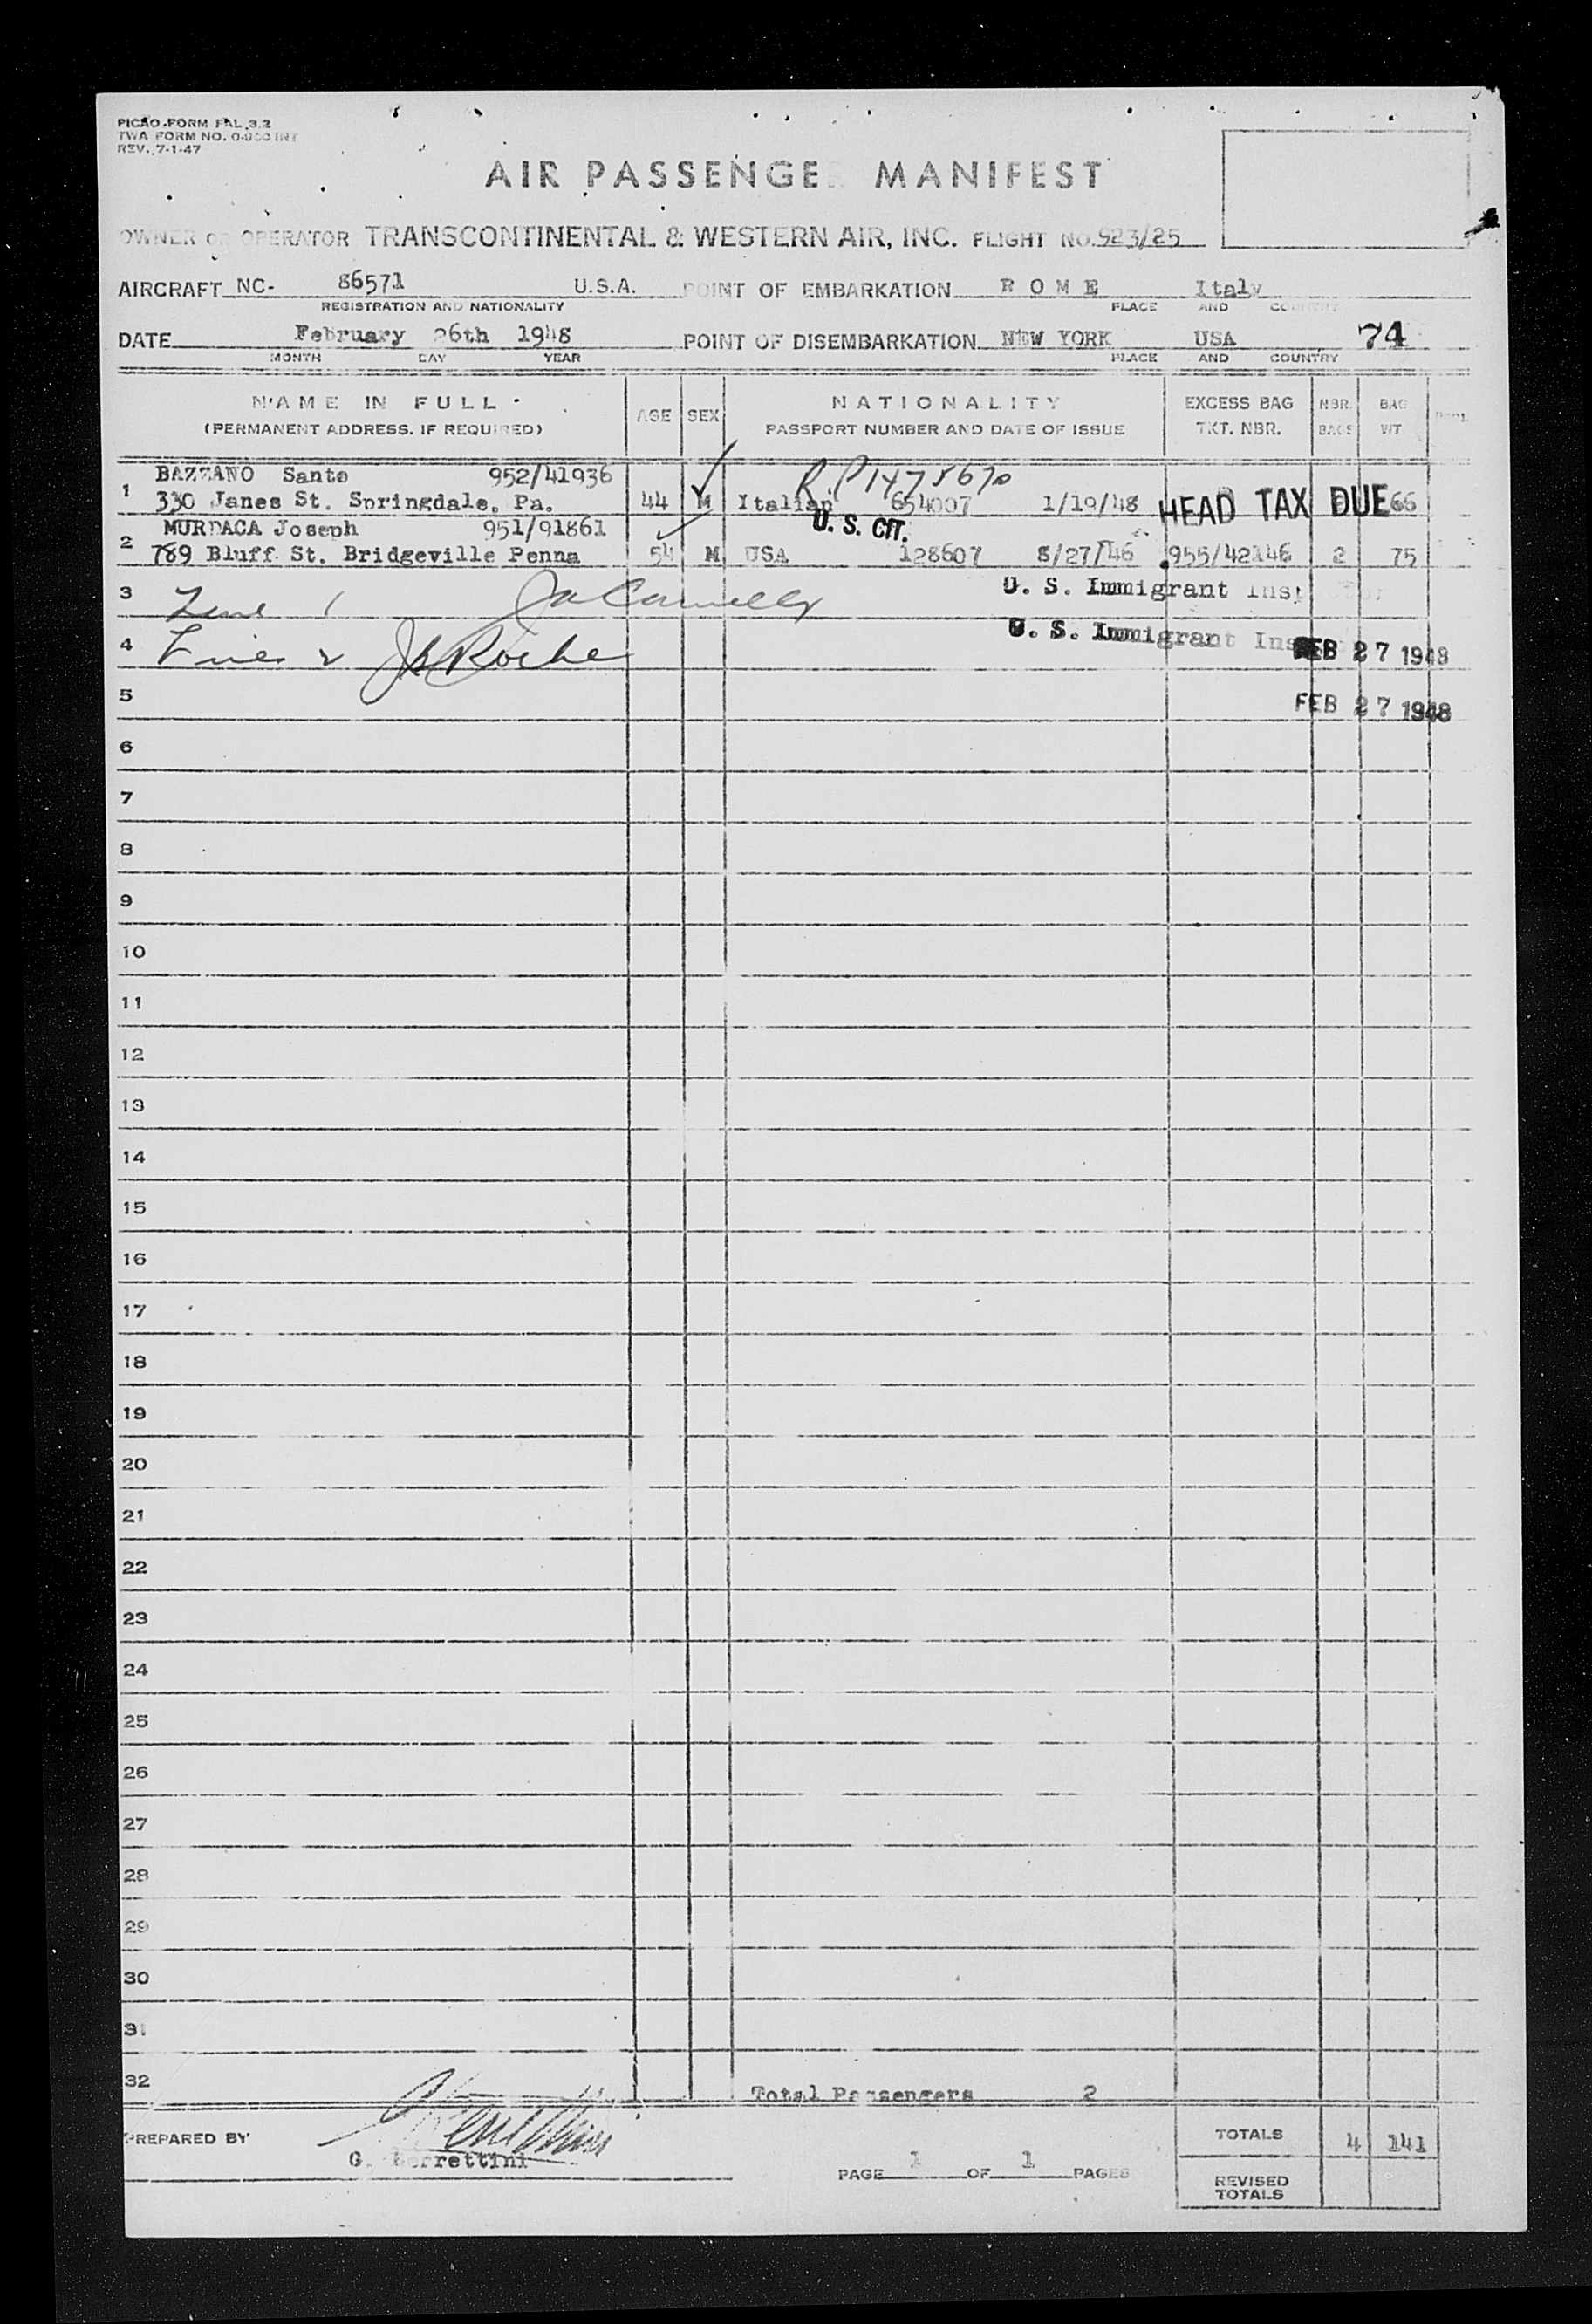 PICAO FORM FAL 3.2
TWA FORM NO. O-950 INT
REV. 7-1-47
AIR PASSENGER MANIFEST
OWNER OR OPERATOR TRANSCONTINENTAL & WESTERN AIR, INC. FLIGHT NO. 923/25
AIRCRAFT NC- 86571 U.S.A. POINT OF EMBARKATION R O M E Italy
REGISTRATION AND NATIONALITY PLACE AND COUNTRY
DATE February 26th 1948 POINT OF DISEMBARKATION NEW YORK USA 74
MONTH DAY YEAR PLACE AND COUNTRY
NAME IN FULL AGE SEX NATIONALITY EXCESS BAG NBR. BAG
(PERMANENT ADDRESS. IF REQUIRED) PASSPORT NUMBER AND DATE OF ISSUE TKT. NBR. BAGS WT
BAZZANO Sante 952/41936 R.P 1475670
1 330 Janes St. Springdale, Pa. 44 M Italian 654007 1/19/48 HEAD TAX DUE 66
MURDACA Joseph 951/91861 U. S. CIT.
2 789 Bluff St. Bridgeville Penna 54 M USA 128607 8/27/46 955/42146 2 75
3 Line 1 U. S. Immigrant
4 Line 2 JRoche U. S. Immigrant FEB 27 1948
5 FEB 27 1948
6
7
8
9
10
11
12
13
14
15
16
17
18
19
20
21
22
23
24
25
26
27
28
29
30
31
32 Total Passengers 2
PREPARED BY TOTALS 4 141
G. Berrettini
PAGE 1 OF 1 PAGES REVISED
TOTALS